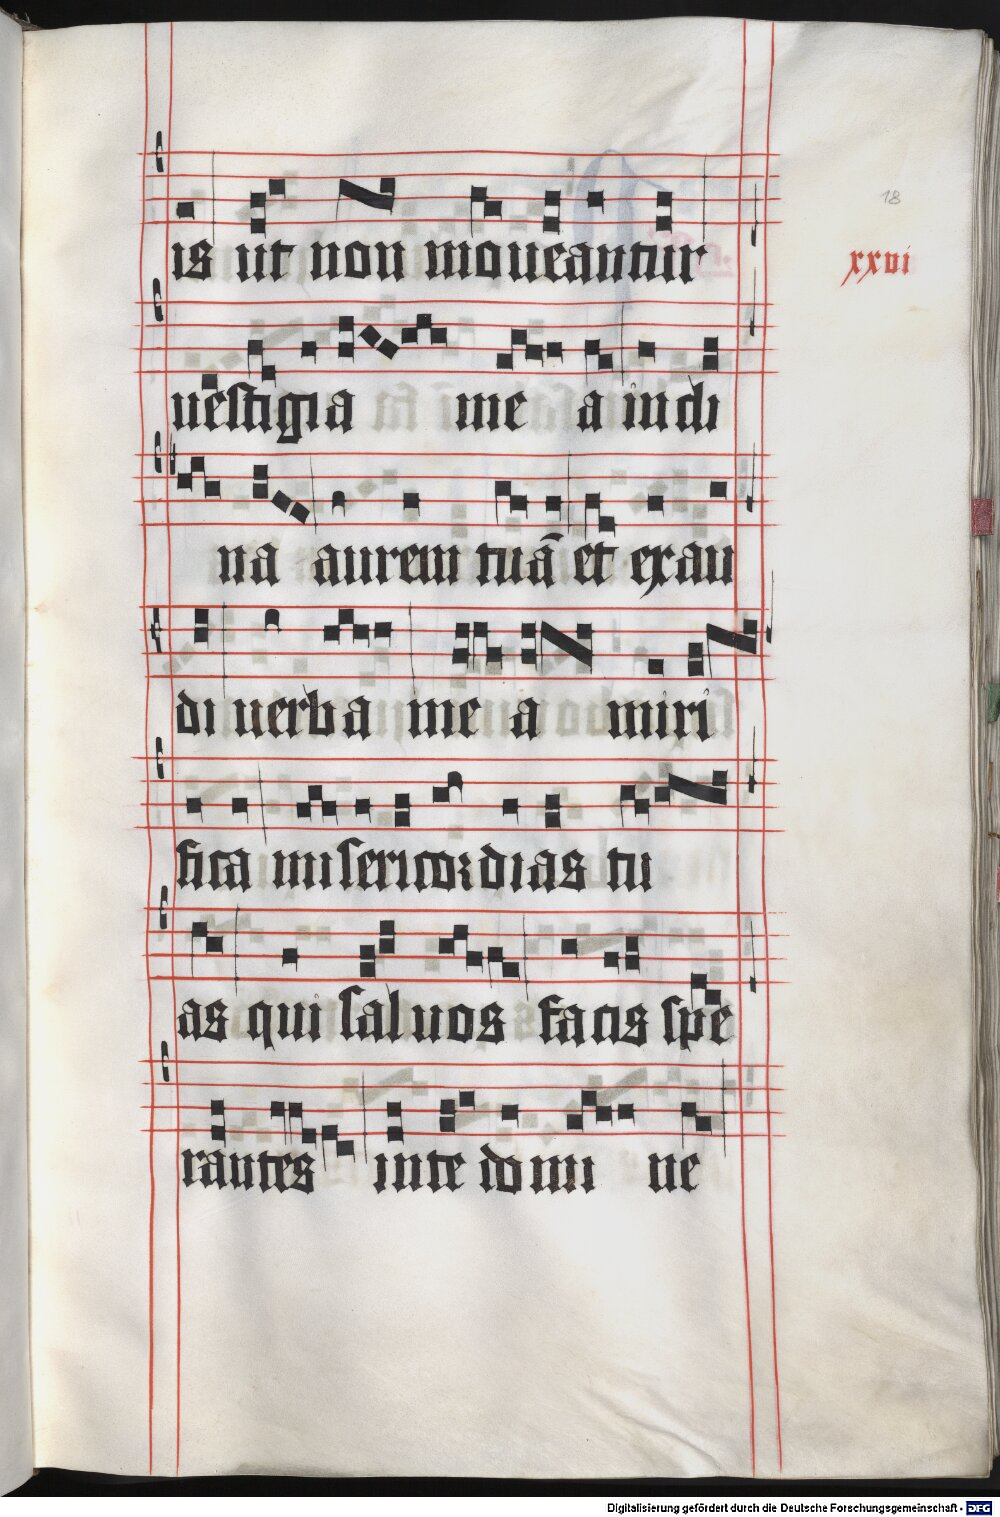 18
xxvi
is ut non moueantur
uestigia me a indi
na aurem tuā et exau
di uerba me a miri
fica misericordias tu
as qui saluos facis spe
rantes in te domi ne
Digitalisierung gefördert durch die Deutsche Forschungsgemeinschaft - DFG